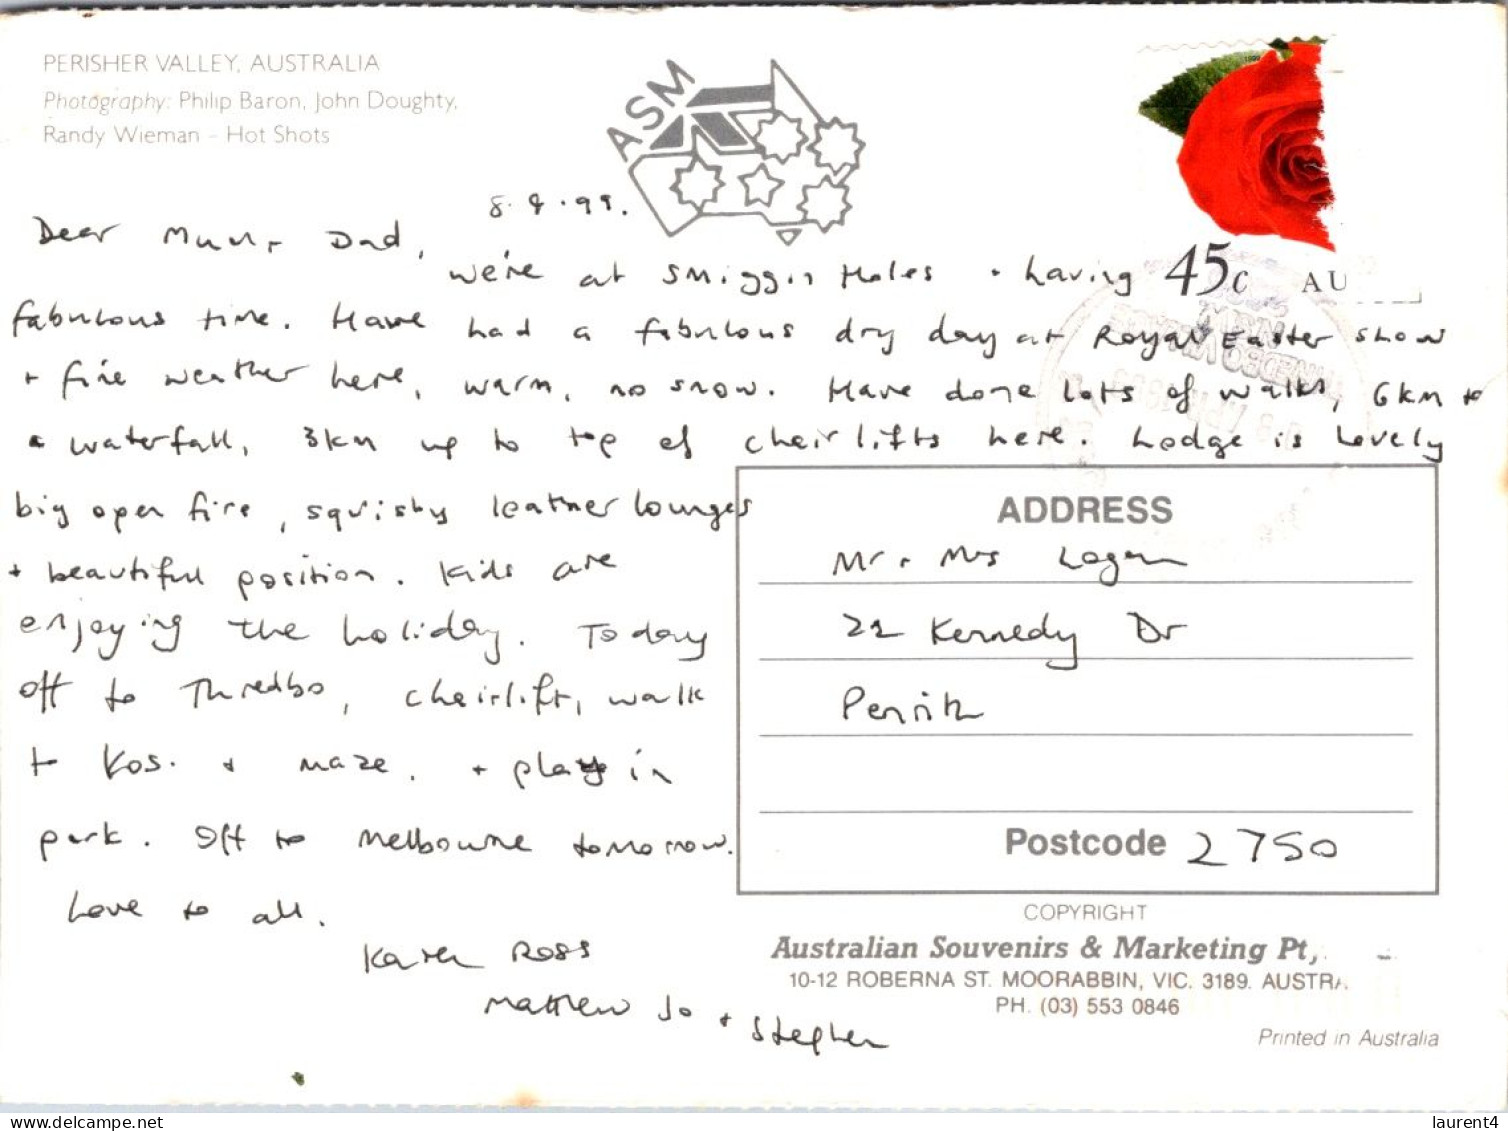 PERISHER VALLEY, AUSTRALIA
Photography: Philip Baron, John Doughty,
Randy Wieman – Hot Shots
ASM
8.4.99.
Dear Mum + Dad,
we're at Smiggin Holes + having
fabulous time. Have had a fabulous dry day at Royal Easter Show
+ fine weather here, warm, no snow. Have done lots of walks, 6km to
a waterfall, 3km up to top of chairlifts here. Lodge is lovely
big open fire, squishy leather lounges
+ beautiful position. Kids are
enjoying the holiday. Today
off to Thredbo, chairlift, walk
to Kos. + maze. + play in
park. Off to Melbourne tomorrow.
Love to all.
Karen Ross
Matthew Jo + Stephen
45c AU
ADDRESS
Mr + Mrs Logan
22 Kennedy Dr
Penrith
Postcode 2750
COPYRIGHT
Australian Souvenirs & Marketing Pt,
10-12 ROBERNA ST. MOORABBIN, VIC. 3189. AUSTRA
PH. (03) 553 0846
Printed in Australia
laurent4